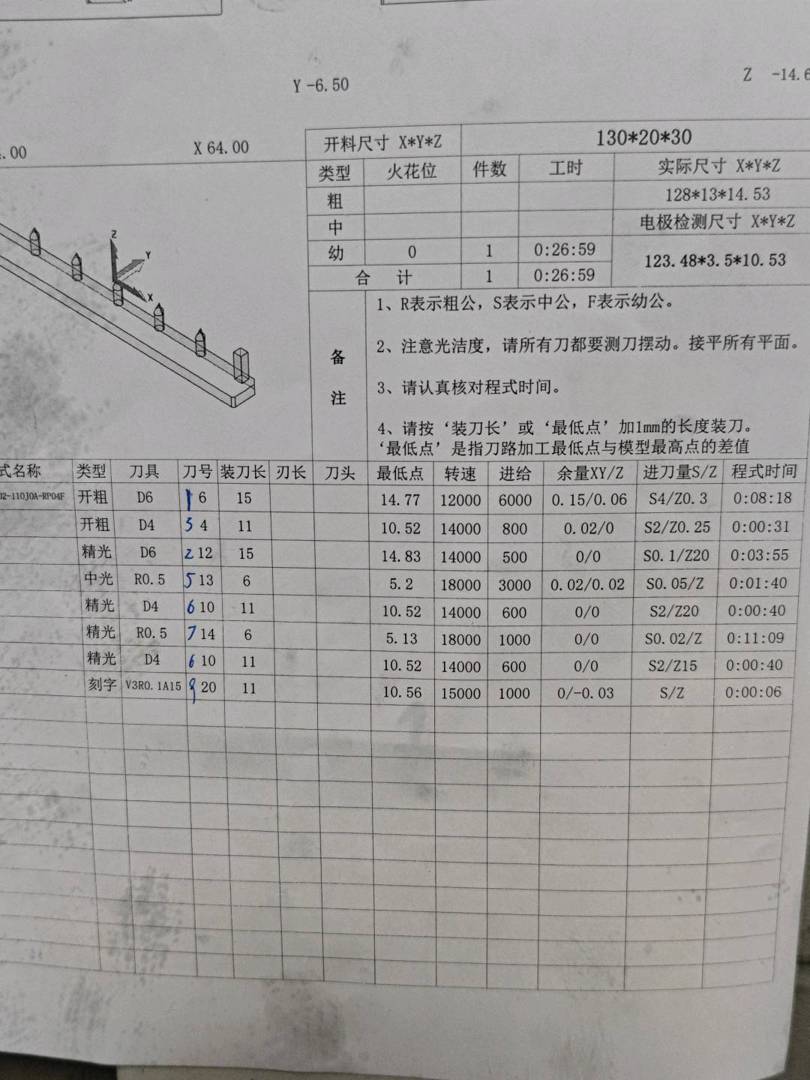 Y -6.50
Z -14.6
.00
X 64.00
开料尺寸 X*Y*Z 130*20*30
类型 火花位 件数 工时 实际尺寸 X*Y*Z
粗 128*13*14.53
中 电极检测尺寸 X*Y*Z
幼 0 1 0:26:59 123.48*3.5*10.53
合 计 1 0:26:59
Z
Y
X
备注
1、R表示粗公,S表示中公,F表示幼公。
2、注意光洁度,请所有刀都要测刀摆动。接平所有平面。
3、请认真核对程式时间。
4、请按‘装刀长’或‘最低点’加1mm的长度装刀。
‘最低点’是指刀路加工最低点与模型最高点的差值
式名称 类型 刀具 刀号 装刀长 刃长 刀头 最低点 转速 进给 余量XY/Z 进刀量S/Z 程式时间
02-110J0A-RP04F 开粗 D6 1 6 15 14.77 12000 6000 0.15/0.06 S4/Z0.3 0:08:18
开粗 D4 3 4 11 10.52 14000 800 0.02/0 S2/Z0.25 0:00:31
精光 D6 2 12 15 14.83 14000 500 0/0 S0.1/Z20 0:03:55
中光 R0.5 5 13 6 5.2 18000 3000 0.02/0.02 S0.05/Z 0:01:40
精光 D4 6 10 11 10.52 14000 600 0/0 S2/Z20 0:00:40
精光 R0.5 7 14 6 5.13 18000 1000 0/0 S0.02/Z 0:11:09
精光 D4 6 10 11 10.52 14000 600 0/0 S2/Z15 0:00:40
刻字 V3R0.1A15 9 20 11 10.56 15000 1000 0/-0.03 S/Z 0:00:06